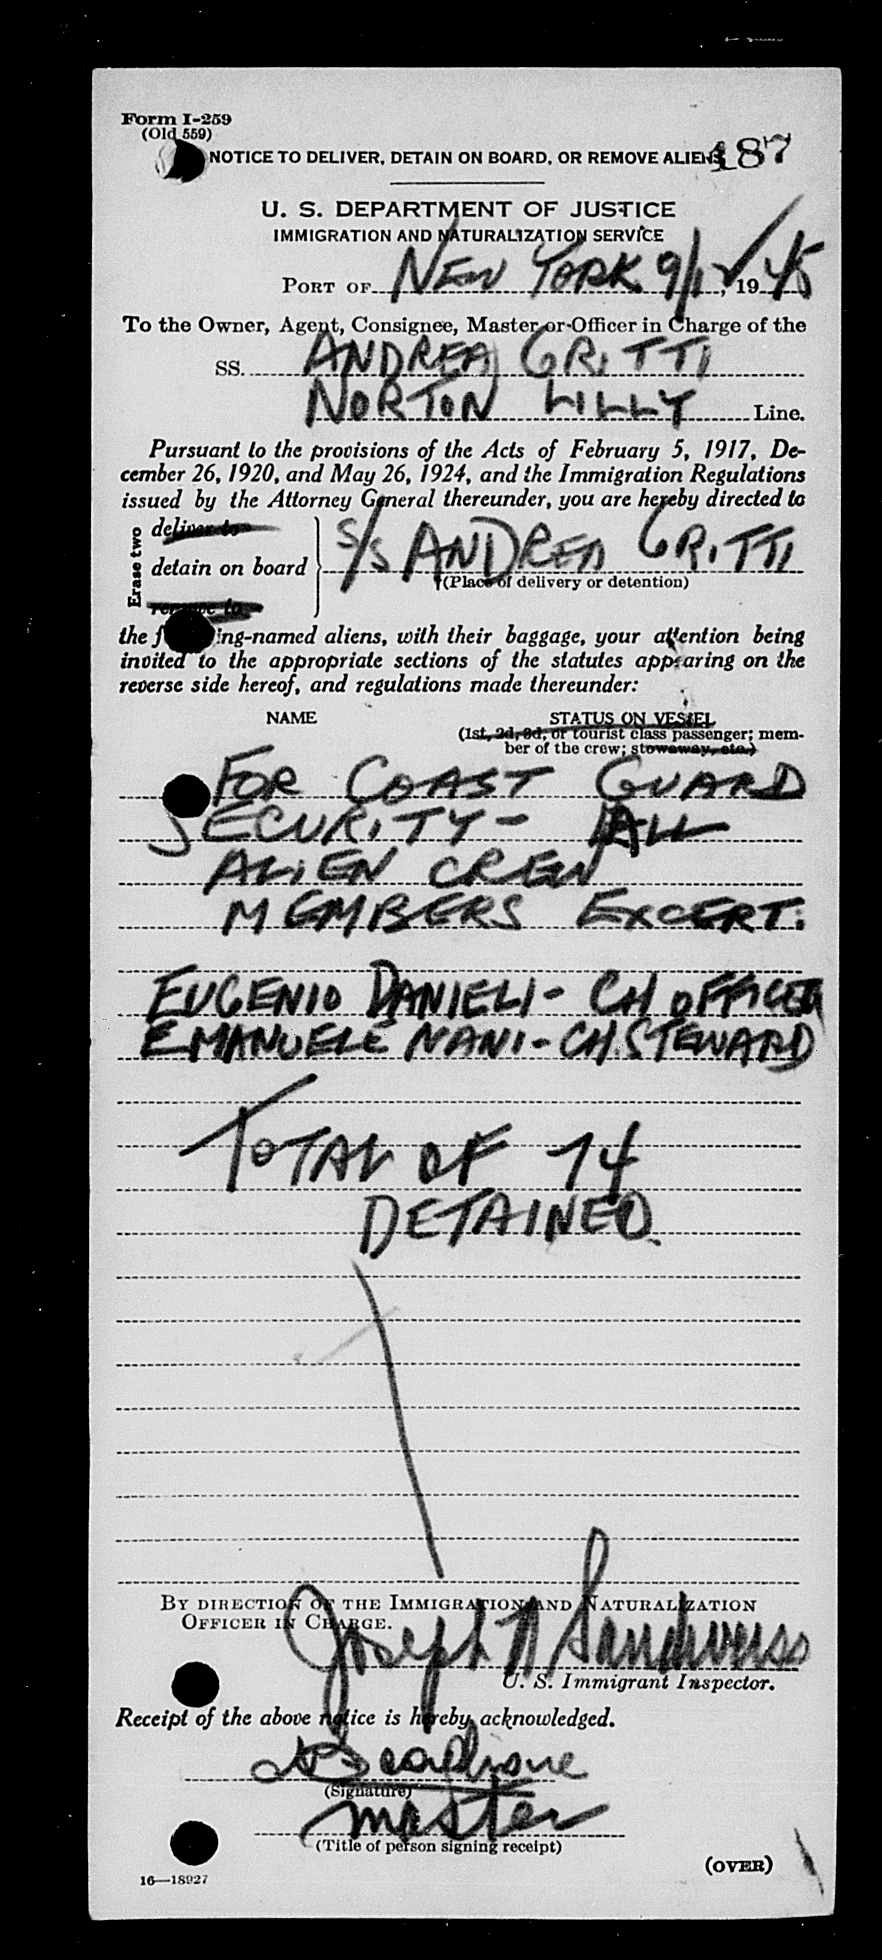 Form I-259
(Old 559)
NOTICE TO DELIVER, DETAIN ON BOARD, OR REMOVE ALIENS
187
U. S. DEPARTMENT OF JUSTICE
IMMIGRATION AND NATURALIZATION SERVICE
PORT OF NEW YORK 9/12, 1945
To the Owner, Agent, Consignee, Master or Officer in Charge of the
SS. ANDREA GRITTI
NORTON LILLY Line.
Pursuant to the provisions of the Acts of February 5, 1917, De-
cember 26, 1920, and May 26, 1924, and the Immigration Regulations
issued by the Attorney General thereunder, you are hereby directed to
Erase two
deliver to
detain on board
remove to
S/S ANDREA GRITTI
(Place of delivery or detention)
the following-named aliens, with their baggage, your attention being
invited to the appropriate sections of the statutes appearing on the
reverse side hereof, and regulations made thereunder:
NAME STATUS ON VESSEL
(1st, 2d, 3d, or tourist class passenger; mem-
ber of the crew; stowaway, etc.)
FOR COAST GUARD
SECURITY - ALL
ALIEN CREW
MEMBERS EXCEPT:
EUGENIO DANIELI - CH OFFICER
EMANUELE NANI - CH. STEWARD
TOTAL OF 74
DETAINED.
BY DIRECTION OF THE IMMIGRATION AND NATURALIZATION
OFFICER IN CHARGE.
Joseph N
U. S. Immigrant Inspector.
Receipt of the above notice is hereby acknowledged.
(Signature)
Master
(Title of person signing receipt)
(OVER)
16—18927